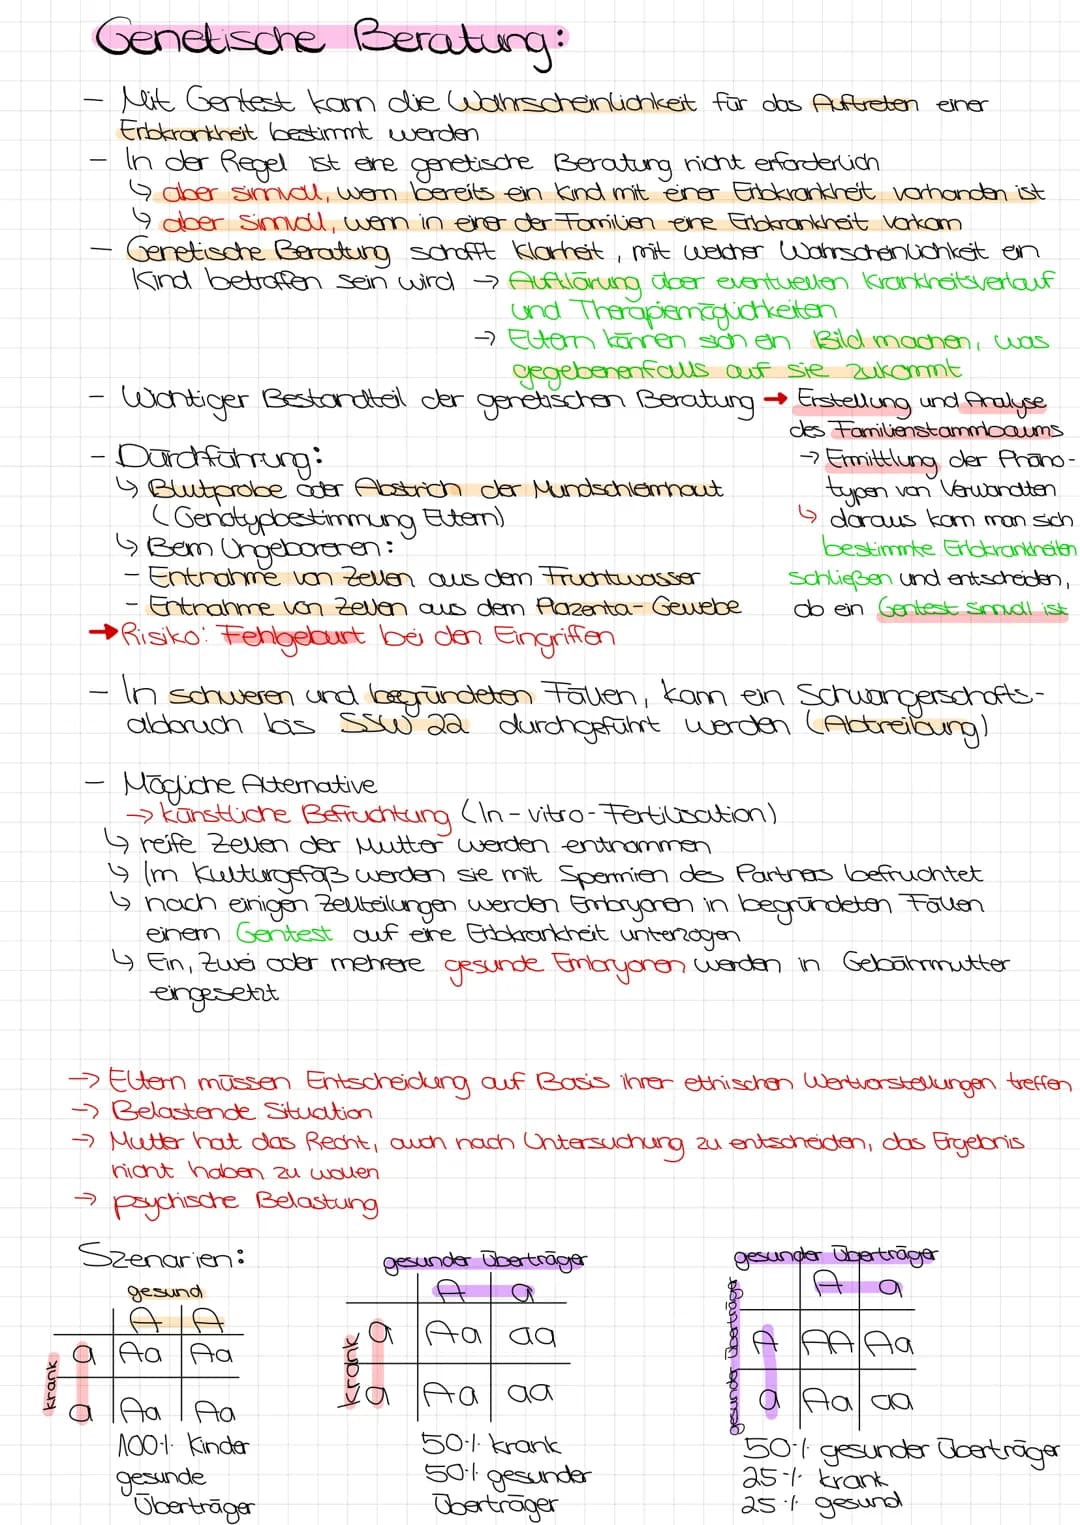 Genetische Beratung:
- Mit Gentest kann die Wahrscheinlichkeit für das Auftreten einer
Erbkrankheit bestimmt werden
- In der Regel ist eine genetische Beratung nicht erforderlich
↳ aber sinnvoll, wenn bereits ein Kind mit einer Erbkrankheit vorhanden ist
↳ aber sinnvoll, wenn in einer der Familien eine Erbkrankheit vorkam
- Genetische Beratung schafft Klarheit, mit welcher Wahrscheinlichkeit ein
Kind betroffen sein wird → Aufklärung über eventuellen Krankheitsverlauf
und Therapiemöglichkeiten
→ Eltern können sich ein Bild machen, was
gegebenenfalls auf sie zukommt
- Wichtiger Bestandteil der genetischen Beratung → Erstellung und Analyse
des Familienstammbaums
→ Ermittlung der Phäno-
typen von Verwandten
↳ daraus kann man sich
bestimmte Erbkrankheiten
schließen und entscheiden,
ob ein Gentest sinnvoll ist
- Durchführung:
↳ Blutprobe oder Abstrich der Mundschleimhaut
(Genotypbestimmung Eltern)
↳ Beim Ungeborenen:
- Entnahme von Zellen aus dem Fruchtwasser
- Entnahme von Zellen aus dem Plazenta-Gewebe
→ Risiko: Fehlgeburt bei den Eingriffen
- In schweren und begründeten Fällen, kann ein Schwangerschafts-
abbruch bis SSW 22 durchgeführt werden (Abtreibung)
- Mögliche Alternative
→ künstliche Befruchtung (In-vitro-Fertilisation)
↳ reife Zellen der Mutter werden entnommen
↳ Im Kulturgefäß werden sie mit Spermien des Partners befruchtet
↳ nach einigen Zellteilungen werden Embryonen in begründeten Fällen
einem Gentest auf eine Erbkrankheit unterzogen
↳ Ein, Zwei oder mehrere gesunde Embryonen werden in Gebährmutter
eingesetzt
→ Eltern müssen Entscheidung auf Basis ihrer ethischen Wertvorstellungen treffen
→ Belastende Situation
→ Mutter hat das Recht, auch nach Untersuchung zu entscheiden, das Ergebnis
nicht haben zu wollen
→ psychische Belastung
Szenarien:
gesund
A A
krank
a Aa Aa
a Aa Aa
100% Kinder
gesunde
Überträger
gesunder Überträger
A a
krank
a Aa aa
a Aa aa
50% krank
50% gesunder
Überträger
gesunder Überträger
A a
gesunder Überträger
A AA Aa
a Aa aa
50% gesunder Überträger
25% krank
25% gesund